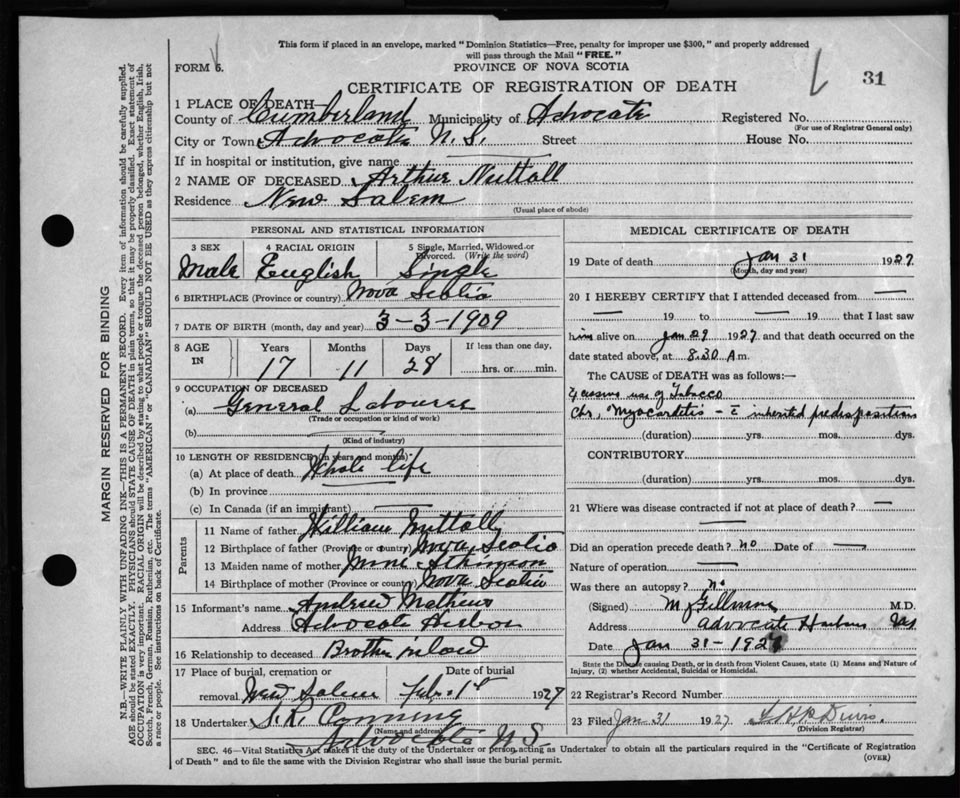 This form if placed in an envelope, marked "Dominion Statistics—Free, penalty for improper use $300," and properly addressed
will pass through the Mail "FREE."
FORM 6.
PROVINCE OF NOVA SCOTIA
31
CERTIFICATE OF REGISTRATION OF DEATH
1 PLACE OF DEATH—
County of Cumberland Municipality of Advocate Registered No.
(For use of Registrar General only)
City or Town Advocate N.S. Street House No.
If in hospital or institution, give name
2 NAME OF DECEASED Arthur Nuttall
Residence New Salem
(Usual place of abode)
PERSONAL AND STATISTICAL INFORMATION
3 SEX 4 RACIAL ORIGIN 5 Single, Married, Widowed or Divorced. (Write the word)
Male English Single
6 BIRTHPLACE (Province or country) Nova Scotia
7 DATE OF BIRTH (month, day and year) 3-3-1909
8 AGE IN Years Months Days If less than one day,
17 11 28 hrs. or min.
9 OCCUPATION OF DECEASED
(a) General Labourer
(Trade or occupation or kind of work)
(b)
(Kind of industry)
10 LENGTH OF RESIDENCE (in years and months)
(a) At place of death Whole life
(b) In province
(c) In Canada (if an immigrant)
Parents
11 Name of father William Nuttall
12 Birthplace of father (Province or country) Nova Scotia
13 Maiden name of mother Atkinson
14 Birthplace of mother (Province or country) Nova Scotia
15 Informant's name Andrew Mathews
Address Advocate Harbor
16 Relationship to deceased Brother inlaw
17 Place of burial, cremation or removal Date of burial
New Salem Feb. 1st 1927
18 Undertaker S.R. Canning
(Name and address)
Advocate N S
MEDICAL CERTIFICATE OF DEATH
19 Date of death Jan 31 1927
(Month, day and year)
20 I HEREBY CERTIFY that I attended deceased from —
— 19 to — 19 that I last saw
him alive on Jan 29 1927 and that death occurred on the
date stated above, at 8.30 A m.
The CAUSE OF DEATH was as follows:—
Excessive use of Tobacco
Chr. Myocarditis - c̄ inherited predisposition
(duration) yrs. mos. dys.
CONTRIBUTORY
(duration) yrs. mos. dys.
21 Where was disease contracted if not at place of death? —
Did an operation precede death? no Date of —
Nature of operation —
Was there an autopsy? no
(Signed) M.D.
Address Advocate Harbor NS
Date Jan 31-1927
State the Disease causing Death, or in death from Violent Causes, state (1) Means and Nature of
Injury, (2) whether Accidental, Suicidal or Homicidal.
22 Registrar's Record Number
23 Filed Jan 31 1927
(Division Registrar)
SEC. 46—Vital Statistics Act makes it the duty of the Undertaker or person acting as Undertaker to obtain all the particulars required in the "Certificate of Registration
of Death" and to file the same with the Division Registrar who shall issue the burial permit.
(OVER)
MARGIN RESERVED FOR BINDING
N.B.—WRITE PLAINLY WITH UNFADING INK—THIS IS A PERMANENT RECORD. Every item of information should be carefully supplied.
AGE should be stated EXACTLY. PHYSICIANS should STATE CAUSE OF DEATH in plain terms, so that it may be properly classified. Exact statement of
OCCUPATION is very important. RACIAL ORIGIN will be described by stating to what people or tongue the deceased person belonged, whether English, Irish,
Scotch, French, German, Russian, Ruthenian, etc. The terms "AMERICAN" or "CANADIAN" SHOULD NOT BE USED as they express citizenship but not
a race or people. See instructions on back of Certificate.